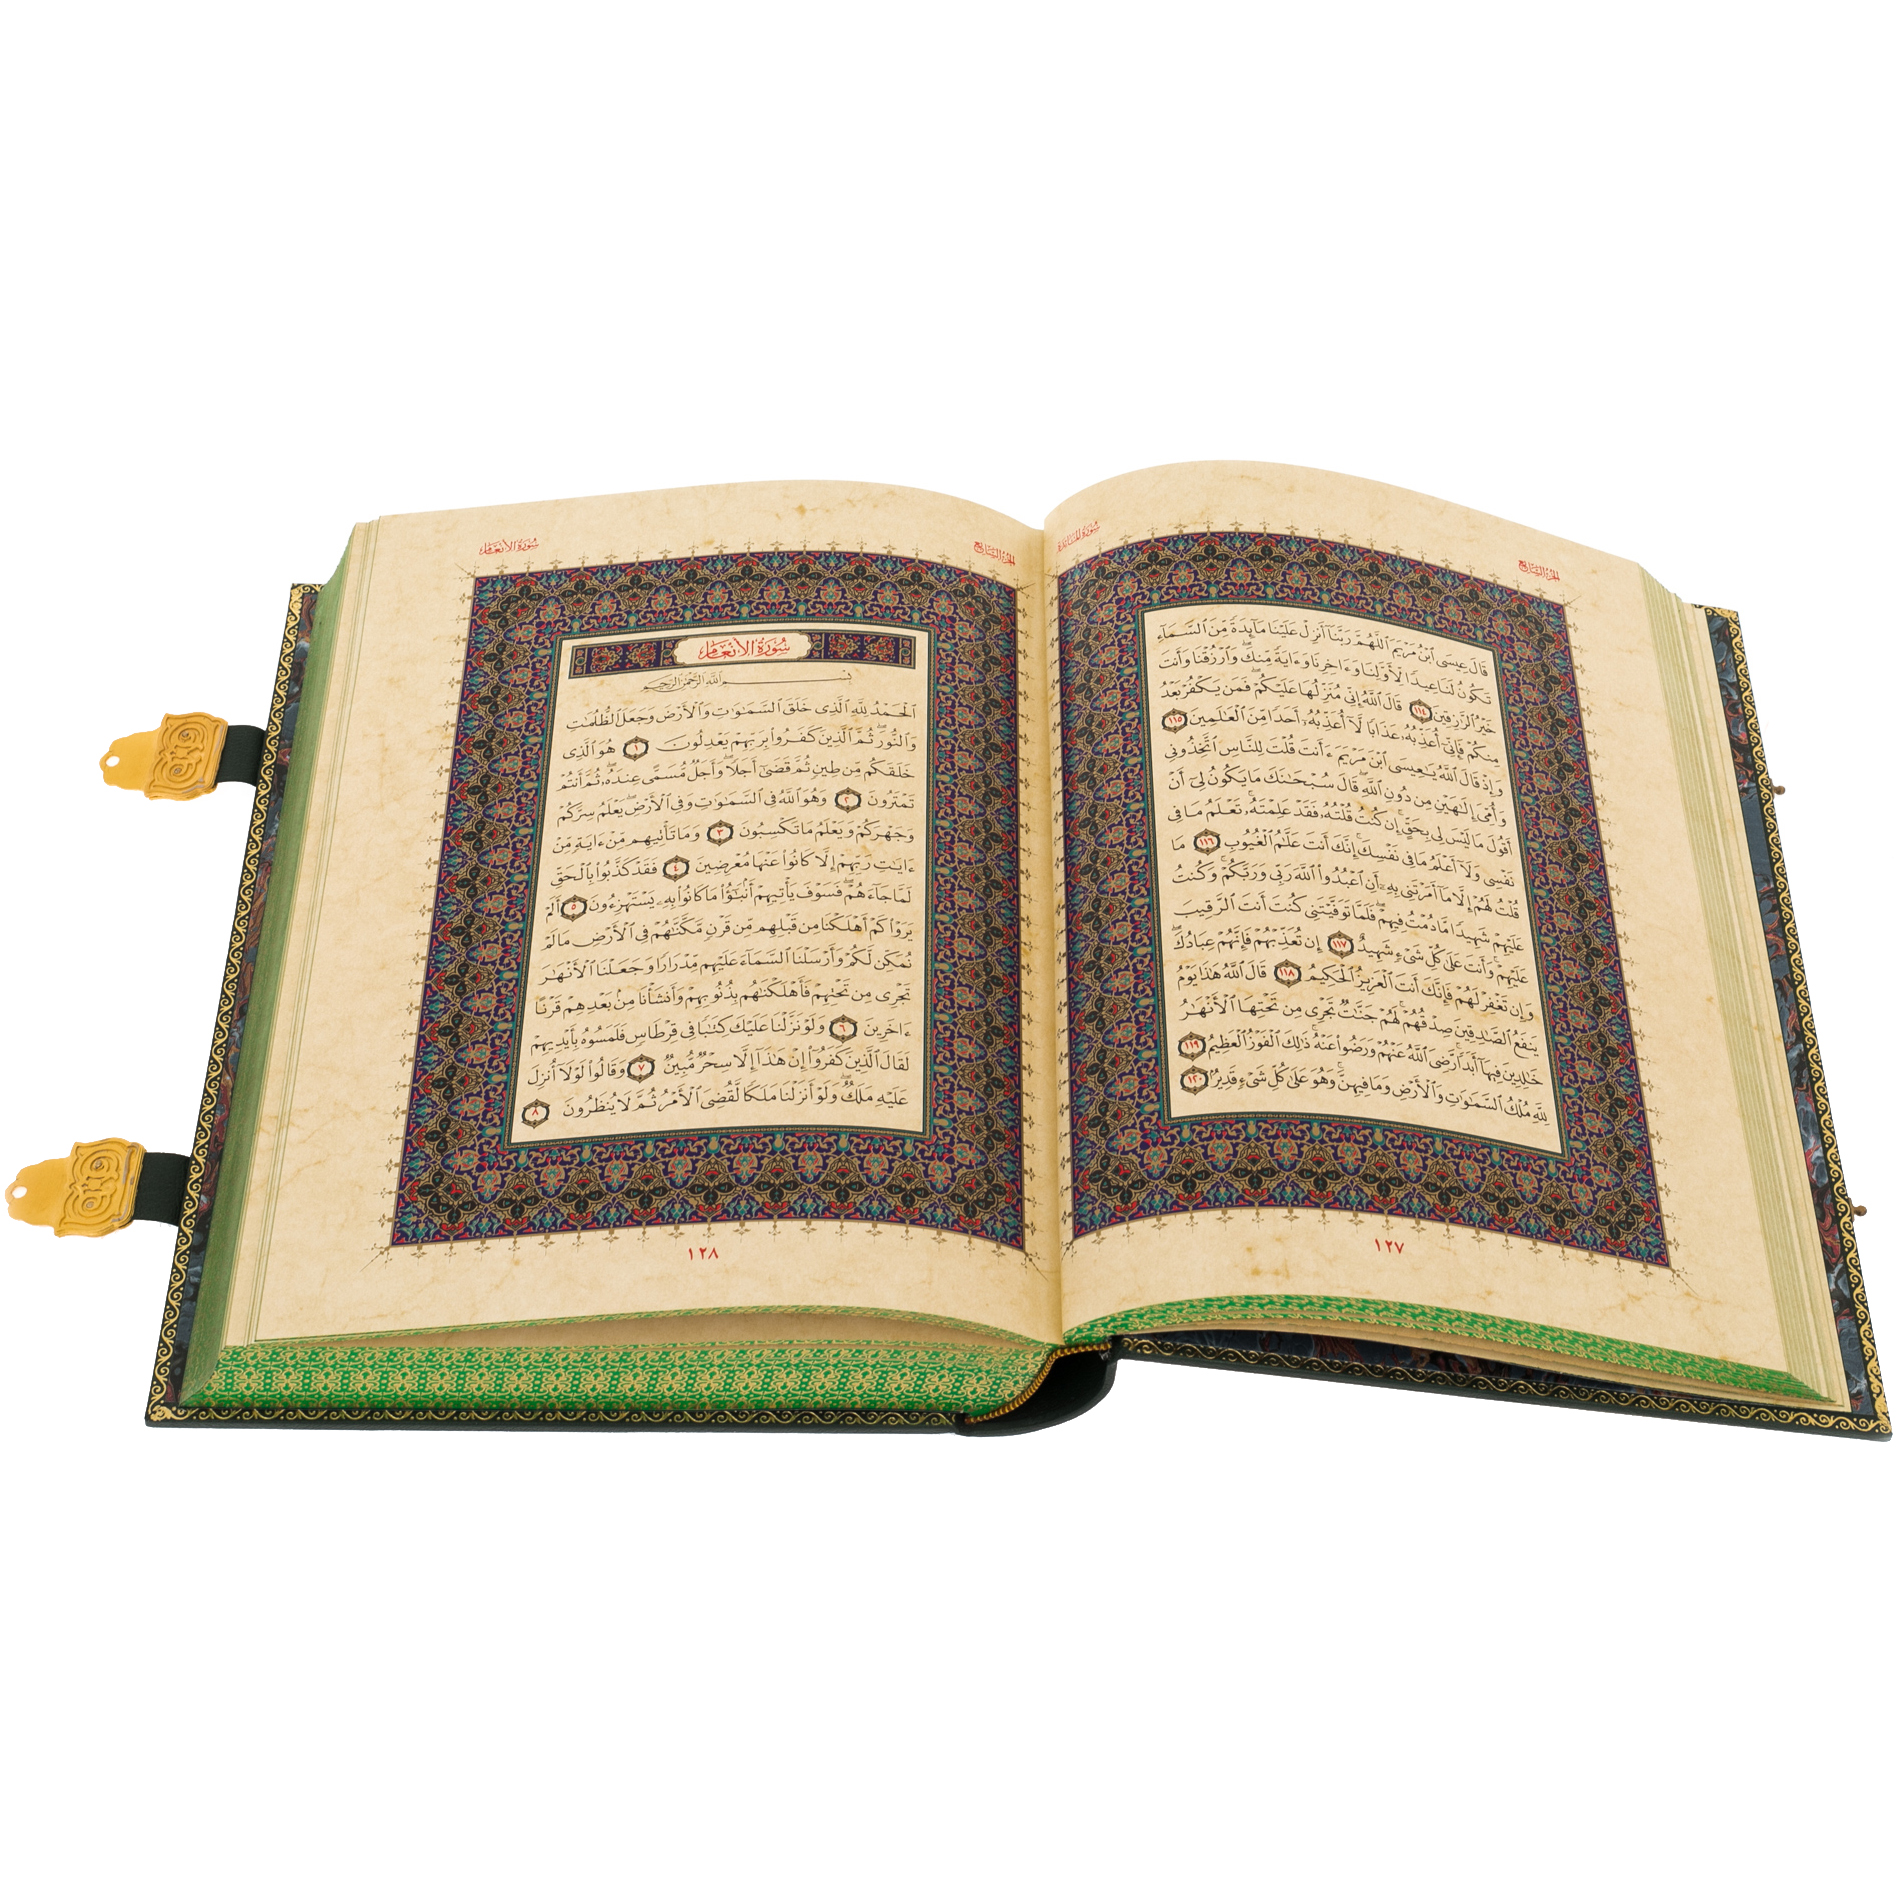 الجزء السابع
سورة المائدة
قَالَ عِيسَى ٱبْنُ مَرْيَمَ ٱللَّهُمَّ رَبَّنَآ أَنزِلْ عَلَيْنَا مَآئِدَةً مِّنَ ٱلسَّمَآءِ
تَكُونُ لَنَا عِيدًا لِّأَوَّلِنَا وَءَاخِرِنَا وَءَايَةً مِّنكَ ۖ وَٱرْزُقْنَا وَأَنتَ
خَيْرُ ٱلرَّٰزِقِينَ ١١٤ قَالَ ٱللَّهُ إِنِّى مُنَزِّلُهَا عَلَيْكُمْ ۖ فَمَن يَكْفُرْ بَعْدُ
مِنكُمْ فَإِنِّىٓ أُعَذِّبُهُۥ عَذَابًا لَّآ أُعَذِّبُهُۥٓ أَحَدًا مِّنَ ٱلْعَٰلَمِينَ ١١٥
وَإِذْ قَالَ ٱللَّهُ يَٰعِيسَى ٱبْنَ مَرْيَمَ ءَأَنتَ قُلْتَ لِلنَّاسِ ٱتَّخِذُونِى
وَأُمِّىَ إِلَٰهَيْنِ مِن دُونِ ٱللَّهِ ۖ قَالَ سُبْحَٰنَكَ مَا يَكُونُ لِىٓ أَنْ
أَقُولَ مَا لَيْسَ لِى بِحَقٍّ ۚ إِن كُنتُ قُلْتُهُۥ فَقَدْ عَلِمْتَهُۥ ۚ تَعْلَمُ مَا فِى
نَفْسِى وَلَآ أَعْلَمُ مَا فِى نَفْسِكَ ۚ إِنَّكَ أَنتَ عَلَّٰمُ ٱلْغُيُوبِ ١١٦ مَا
قُلْتُ لَهُمْ إِلَّا مَآ أَمَرْتَنِى بِهِۦٓ أَنِ ٱعْبُدُوا۟ ٱللَّهَ رَبِّى وَرَبَّكُمْ ۚ وَكُنتُ
عَلَيْهِمْ شَهِيدًا مَّا دُمْتُ فِيهِمْ ۖ فَلَمَّا تَوَفَّيْتَنِى كُنتَ أَنتَ ٱلرَّقِيبَ
عَلَيْهِمْ ۚ وَأَنتَ عَلَىٰ كُلِّ شَىْءٍ شَهِيدٌ ١١٧ إِن تُعَذِّبْهُمْ فَإِنَّهُمْ عِبَادُكَ ۖ
وَإِن تَغْفِرْ لَهُمْ فَإِنَّكَ أَنتَ ٱلْعَزِيزُ ٱلْحَكِيمُ ١١٨ قَالَ ٱللَّهُ هَٰذَا يَوْمُ
يَنفَعُ ٱلصَّٰدِقِينَ صِدْقُهُمْ ۚ لَهُمْ جَنَّٰتٌ تَجْرِى مِن تَحْتِهَا ٱلْأَنْهَٰرُ
خَٰلِدِينَ فِيهَآ أَبَدًا ۚ رَّضِىَ ٱللَّهُ عَنْهُمْ وَرَضُوا۟ عَنْهُ ۚ ذَٰلِكَ ٱلْفَوْزُ ٱلْعَظِيمُ ١١٩
لِلَّهِ مُلْكُ ٱلسَّمَٰوَٰتِ وَٱلْأَرْضِ وَمَا فِيهِنَّ ۚ وَهُوَ عَلَىٰ كُلِّ شَىْءٍ قَدِيرٌۢ ١٢٠
١٢٧
الجزء السابع
سورة الأنعام
سُورَةُ الأَنْعَامِ
بِسْمِ ٱللَّهِ ٱلرَّحْمَٰنِ ٱلرَّحِيمِ
ٱلْحَمْدُ لِلَّهِ ٱلَّذِى خَلَقَ ٱلسَّمَٰوَٰتِ وَٱلْأَرْضَ وَجَعَلَ ٱلظُّلُمَٰتِ
وَٱلنُّورَ ۖ ثُمَّ ٱلَّذِينَ كَفَرُوا۟ بِرَبِّهِمْ يَعْدِلُونَ ١ هُوَ ٱلَّذِى
خَلَقَكُم مِّن طِينٍ ثُمَّ قَضَىٰٓ أَجَلًا ۖ وَأَجَلٌ مُّسَمًّى عِندَهُۥ ۖ ثُمَّ أَنتُمْ
تَمْتَرُونَ ٢ وَهُوَ ٱللَّهُ فِى ٱلسَّمَٰوَٰتِ وَفِى ٱلْأَرْضِ ۖ يَعْلَمُ سِرَّكُمْ
وَجَهْرَكُمْ وَيَعْلَمُ مَا تَكْسِبُونَ ٣ وَمَا تَأْتِيهِم مِّنْ ءَايَةٍ مِّنْ
ءَايَٰتِ رَبِّهِمْ إِلَّا كَانُوا۟ عَنْهَا مُعْرِضِينَ ٤ فَقَدْ كَذَّبُوا۟ بِٱلْحَقِّ
لَمَّا جَآءَهُمْ ۖ فَسَوْفَ يَأْتِيهِمْ أَنۢبَٰٓؤُا۟ مَا كَانُوا۟ بِهِۦ يَسْتَهْزِءُونَ ٥ أَلَمْ
يَرَوْا۟ كَمْ أَهْلَكْنَا مِن قَبْلِهِم مِّن قَرْنٍ مَّكَّنَّٰهُمْ فِى ٱلْأَرْضِ مَا لَمْ
نُمَكِّن لَّكُمْ وَأَرْسَلْنَا ٱلسَّمَآءَ عَلَيْهِم مِّدْرَارًا وَجَعَلْنَا ٱلْأَنْهَٰرَ
تَجْرِى مِن تَحْتِهِمْ فَأَهْلَكْنَٰهُم بِذُنُوبِهِمْ وَأَنشَأْنَا مِنۢ بَعْدِهِمْ قَرْنًا
ءَاخَرِينَ ٦ وَلَوْ نَزَّلْنَا عَلَيْكَ كِتَٰبًا فِى قِرْطَاسٍ فَلَمَسُوهُ بِأَيْدِيهِمْ
لَقَالَ ٱلَّذِينَ كَفَرُوٓا۟ إِنْ هَٰذَآ إِلَّا سِحْرٌ مُّبِينٌ ٧ وَقَالُوا۟ لَوْلَآ أُنزِلَ
عَلَيْهِ مَلَكٌ ۖ وَلَوْ أَنزَلْنَا مَلَكًا لَّقُضِىَ ٱلْأَمْرُ ثُمَّ لَا يُنظَرُونَ ٨
١٢٨